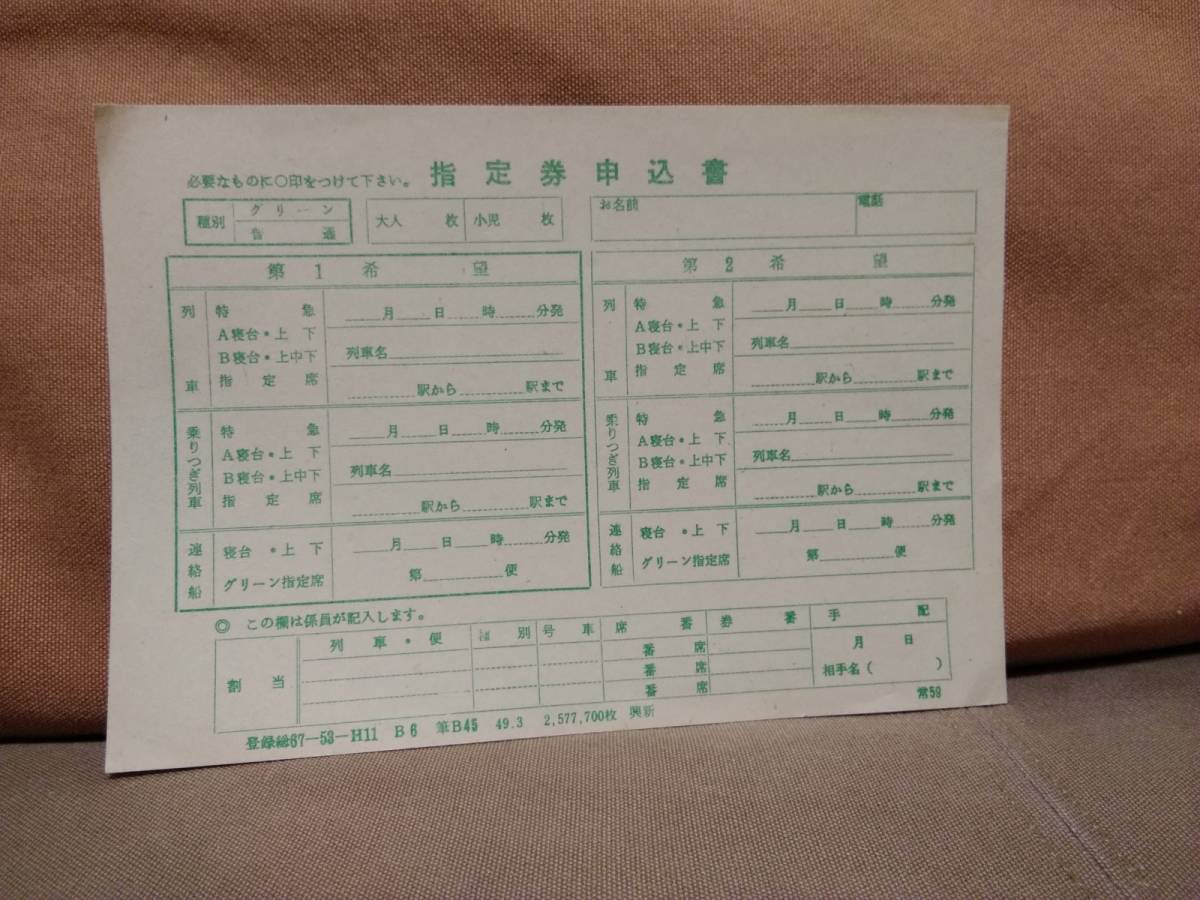 必要なものに○印をつけて下さい。 指定券申込書
種別 グリーン 普通 大人 枚 小児 枚 お名前 電話
第1希望
列車 特急 月 日 時 分発
A寝台・上 下
B寝台・上中下 列車名
指定席 駅から 駅まで
乗りつぎ列車 特急 月 日 時 分発
A寝台・上 下
B寝台・上中下 列車名
指定席 駅から 駅まで
連絡船 寝台・上 下 月 日 時 分発
グリーン指定席 第 便
第2希望
列車 特急 月 日 時 分発
A寝台・上 下
B寝台・上中下 列車名
指定席 駅から 駅まで
乗りつぎ列車 特急 月 日 時 分発
A寝台・上 下
B寝台・上中下 列車名
指定席 駅から 駅まで
連絡船 寝台・上 下 月 日 時 分発
グリーン指定席 第 便
◎ この欄は係員が記入します。
割当 列車・便 種別 号車 席番 券番 手配
番席 月 日
番席 相手名( )
番席
常59
登録総67-53-H11 B6 筆B45 49.3 2,577,700枚 興新